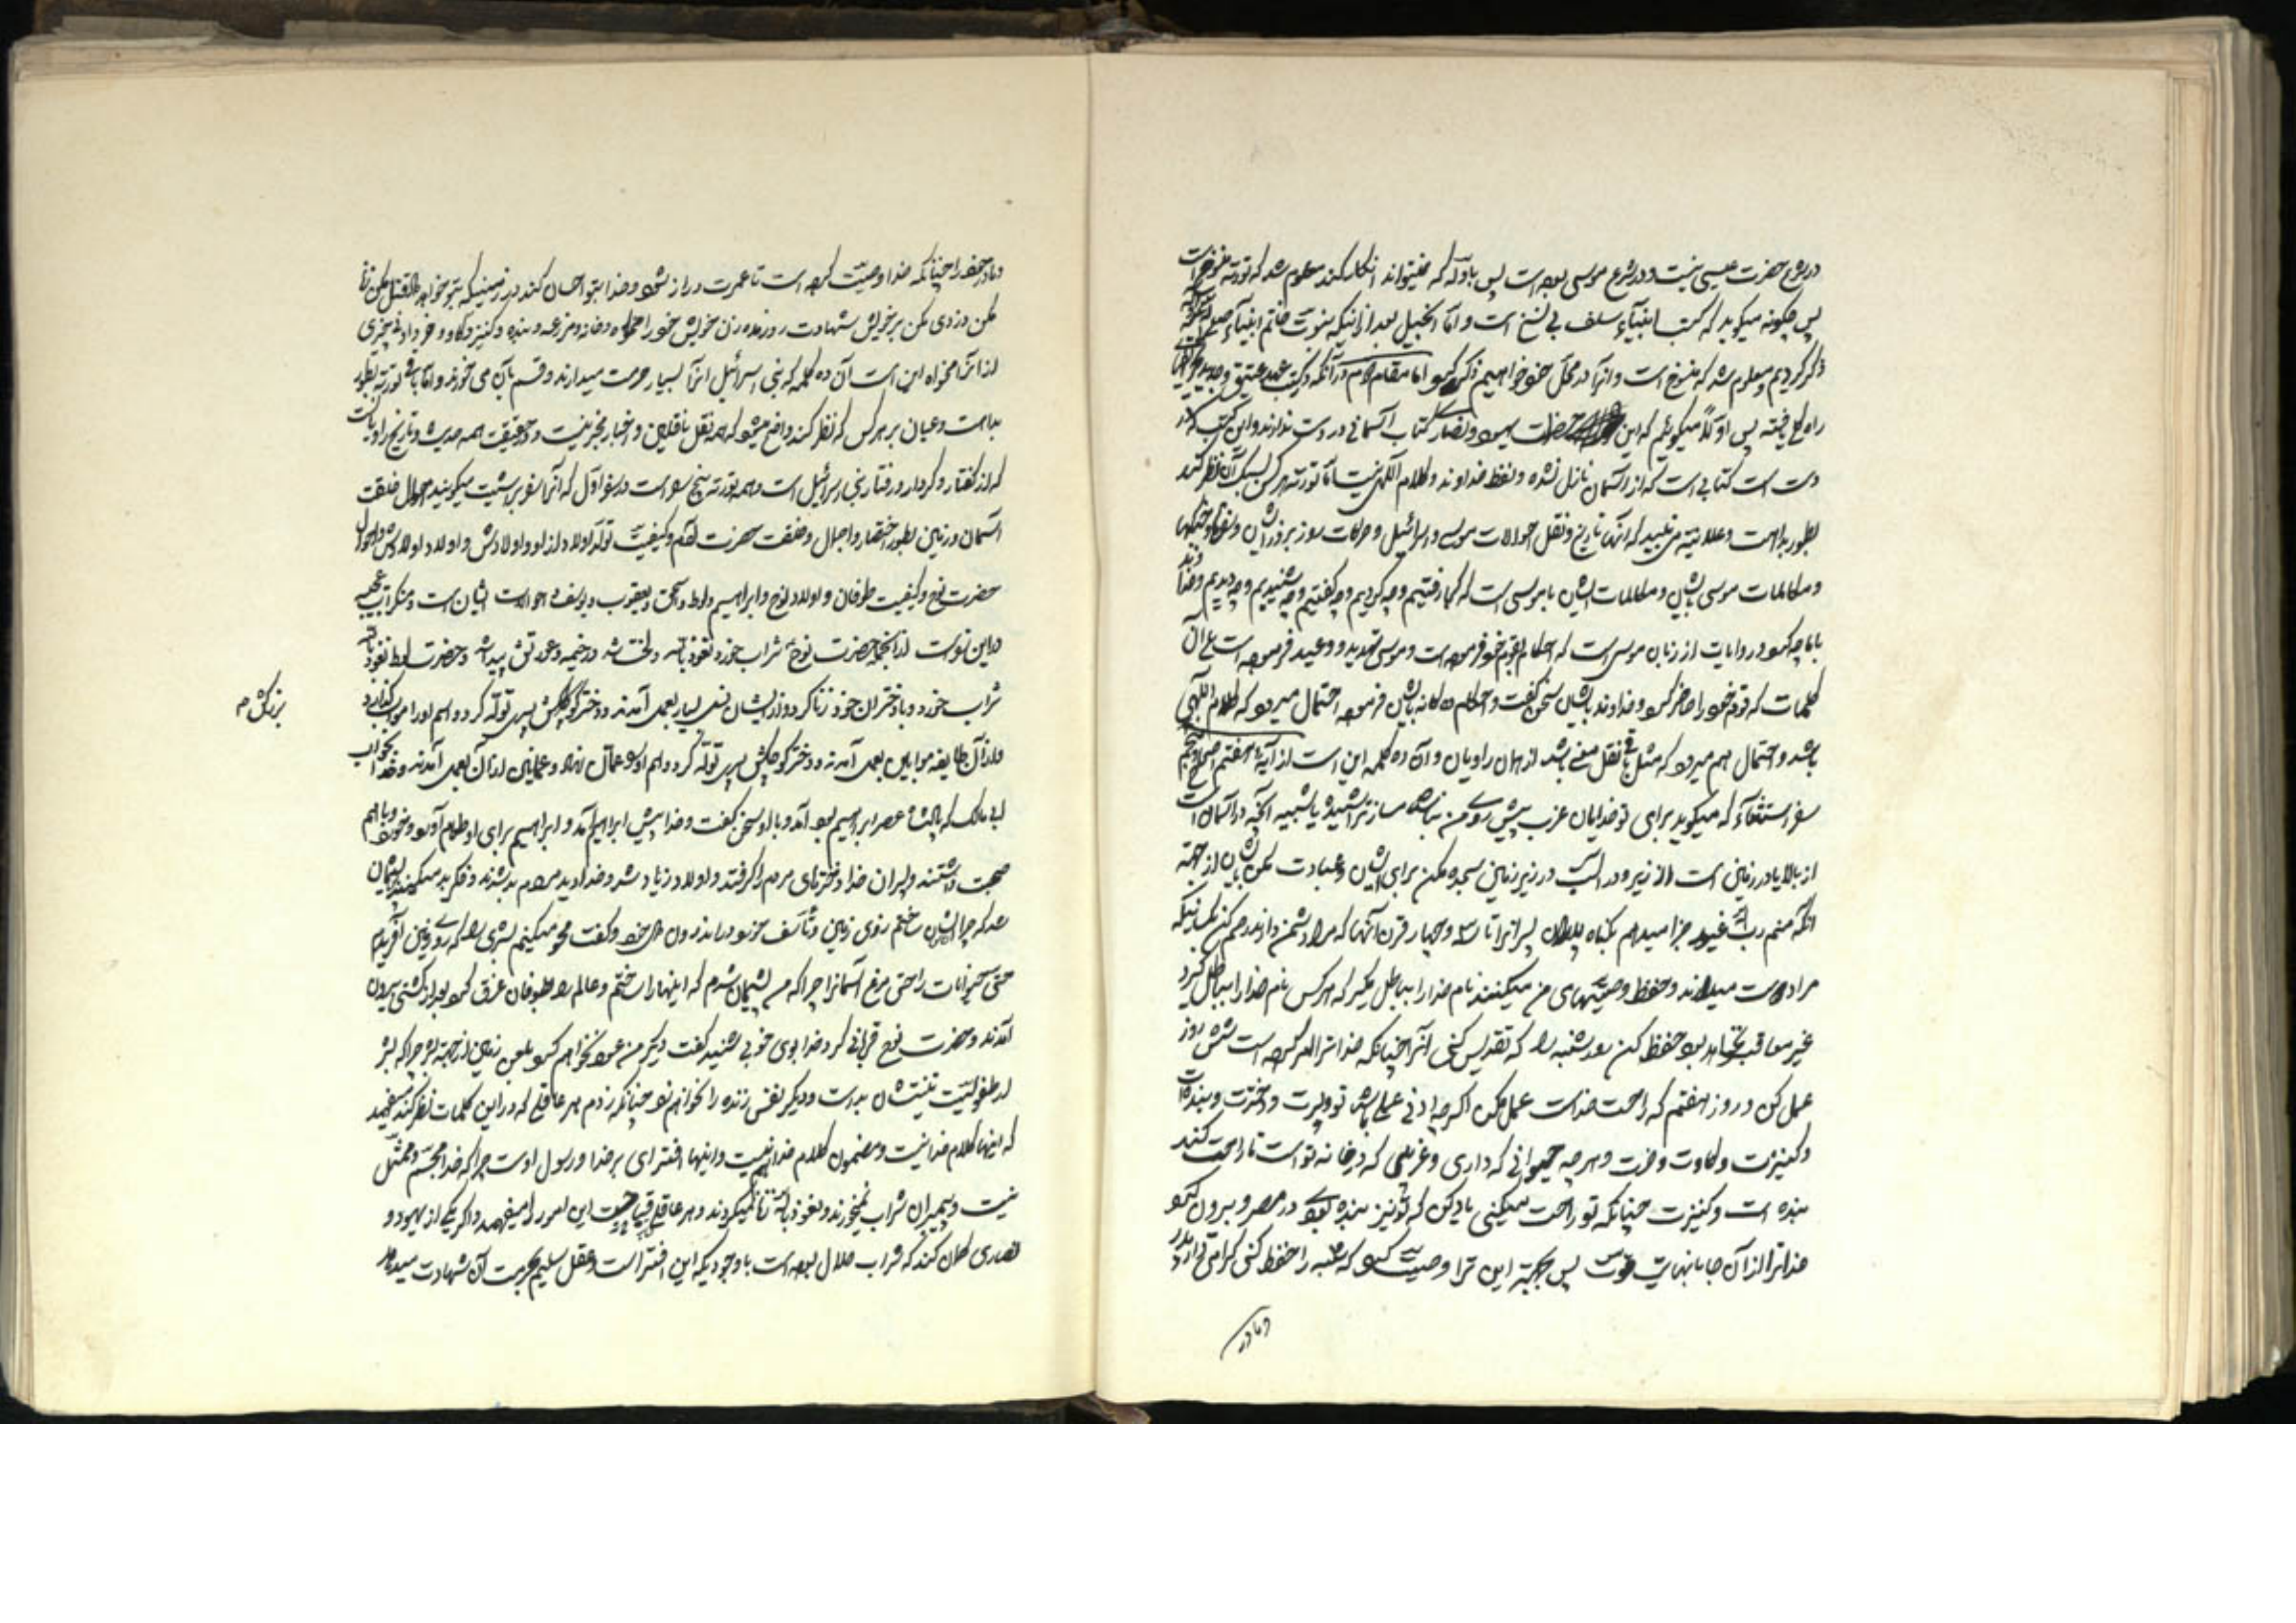 در شرع حضرت عیسی نیست و در شرع موسی بوده است پس باوله که نمیتواند انکار کند معلوم شد که تورته منسوخ است
پس چگونه میگوید که کتب انبیاء سلف بی نسخ است و اما انجیل بعد از اینکه بنبوت خاتم انبیاء صلی
ذکر کردیم و معلوم شد که منسوخ است و انرا در محل خود خواهیم ذکر نمود اما مقام دوم در آنکه در کتب عهد عتیق و جدید
راه یافته پس اولا میگوئیم که این حضرات یهود و نصاری کتاب آسمانی در دست ندارند و این کتب که در
دست است کتابی است که از آسمان نازل نشده و لفظ خداوند و کلام الهی نیست اما تورته هر کس بسبک آن نظر کند
بطور بداهت و علانیه می بیند که آنها تاریخ و نقل احوالات موسی و اسرائیل و حرکات روز بروز ایشان و
و مکالمات موسی باایشان و مکالمات ایشان با موسی است که کجا رفتیم و چه کردیم و چه گفتیم و چه شنیدیم و چه دیدیم و خداوند
باما چه کرد و روایات از زبان موسی است که احکام بقوم خود فرموده است و موسی تهدید و وعید فرموده است
کلمات که قوم خود را حاضر کرد و خداوند باایشان سخن گفت و احکام ده گانه باایشان فرموده احتمال میرود که کلام الهی
باشد و احتمال هم میرود که مثل باقی نقل معنی باشد از همان راویان و آن ده کلمه این است از آیه هفتم اصحاح پنجم
سفر استثناء که میگوید برای تو خدایان غریب پیش روی من نباشد مساز تراشیده یا شبیه آنچه در آسمان است
از بالا یا در زمین است از زیر و در آب در زیر زمین سجده مکن برای ایشان و عبادت مکن باایشان از جهة
آنکه منم رب اله غیور جزا میدهم بگناه پدران پسرانرا تا سه و چهار قرن آنها که مرا دشمن دارند رحم کن بکسانیکه
مرا دوست میدارند و حفظ وصیتهای من میکنند نام خدا را بباطل مگیر که هر کس نام خدا را بباطل گیرد
غیر معاقب نخواهد بود حفظ کن روز شنبه را که تقدیس کنی آنرا چنانکه خدا ترا امر کرده است شش روز
عمل کن و روز هفتم که راحت خداست عمل مکن اگر چه ادنی عملی باشد تو و پسرت و دخترت و بنده ات
و کنیزت و گاوت و خرت و هر چه حیوانی که داری و غریبی که در خانه تو است تا راحت کند
بنده است و کنیزت چنانکه تو راحت میکنی یاد کن که تو نیز بنده بودی در مصر و برون کرد
خدا ترا از آن جا بانهایت قوت پس بجهة این ترا وصیت کرد که شنبه را حفظ کنی گرامی دار پدر
و مادر
و مادر خود را چنانکه خدا وصیت کرده است تا عمرت دراز شود و خدا بتو احسان کند در زمینیکه بتو خواهد داد قتل مکن زنا
مکن دزدی مکن بر خویش شهادت زور مده زن خویش خود را مخواه و خانه و مزرعه و بنده و کنیز و گاو و خر و ادنی چیزی
از او آنرا مخواه این است آن ده کلمه که بنی اسرائیل آنرا بسیار حرمت میدارند و قسم بآن می خورند و اما باقی تورته بطور
بداهت و عیان بر هر کس که نظر کند واضح میشود که همه نقل ناقلین و اخبار مخبرین است و در حقیقت همه حدیث و تاریخ راویانست
که از گفتار و کردار و رفتار بنی اسرائیل است و همه تورته پنج سفر است در سفر اول که آنرا سفر بریشیت میگویند احوال خلقت
آسمان و زمین بطور اختصار و اجمال و خلقت حضرت آدم و کیفیت تولد اولاد از او و اولادش و اولاد اولادش و احوال
حضرت نوح و کیفیت طوفان و اولاد نوح و ابراهیم و لوط و اسحق و یعقوب و یوسف و احوالات ایشان است و منکرات عجیبه
در این تورته است از آنجمله حضرت نوح شراب خورد نعوذ بالله و لخت شد در خیمه و عورتش پیدا شد و حضرت لوط نعوذ بالله
شراب خورد و با دختران خود زنا کرد و از ایشان نسل بسیار بعمل آمدند و دختر بزرگش پسری تولد کرد و اسم او را مواب گذارد
بزرگش م
و از آن طایفه موابین بعمل آمدند و دختر کوچکش پسری تولد کرد و اسم او را عمان نهاد و عمانین از آن بعمل آمدند و خدا بخواب
ابی مالک که پادشاه عصر ابراهیم بود آمد و با او سخن گفت و خدا پیش ابراهیم آمد و ابراهیم برای او طعام آورد و خورد و باهم
صحبت داشتند و پسران خدا دخترهای مردم را گرفتند و اولاد زیاد شد و خدا دید مردم بد شدند و فکر بد میکنند پشیمان
شد که چرا ایشان را ساختم روی زمین و تأسف خورد در اندرون دل خود و گفت محو میکنیم بشری را که روی زمین آفریدم
حتی حیوانات را حتی مرغ آسمانرا چرا که من پشیمان شدم که اینها را ساختم و عالم را بطوفان غرق کرد بعد از کشتی بیرون
آمدند و حضرت نوح قربانی کرد خدا بوی خوبی شنید گفت دیگر من عود نخواهم کرد بلعن زمین از جهة بشر چرا که بشر
از طفولیت نیتشان بد است و دیگر نفس زنده را نخواهم زد چنانکه زدم هر عاقلی که در این کلمات نظر کند میفهمد
که اینها کلام خدا نیست و مضمون کلام خدا هم نیست و اینها افترای بر خدا و رسول اوست چرا که خدا مجسم و ممثل
نیست و پیمبران شراب نمیخورند و نعوذ بالله زنا نمیکردند و هر عاقلی قباحت این امور را میفهمد و اگر یکی از یهود و
نصاری گمان کند که شراب حلال بوده است با وجودیکه این افترا است و عقل سلیم بحرمت آن شهادت میدهد